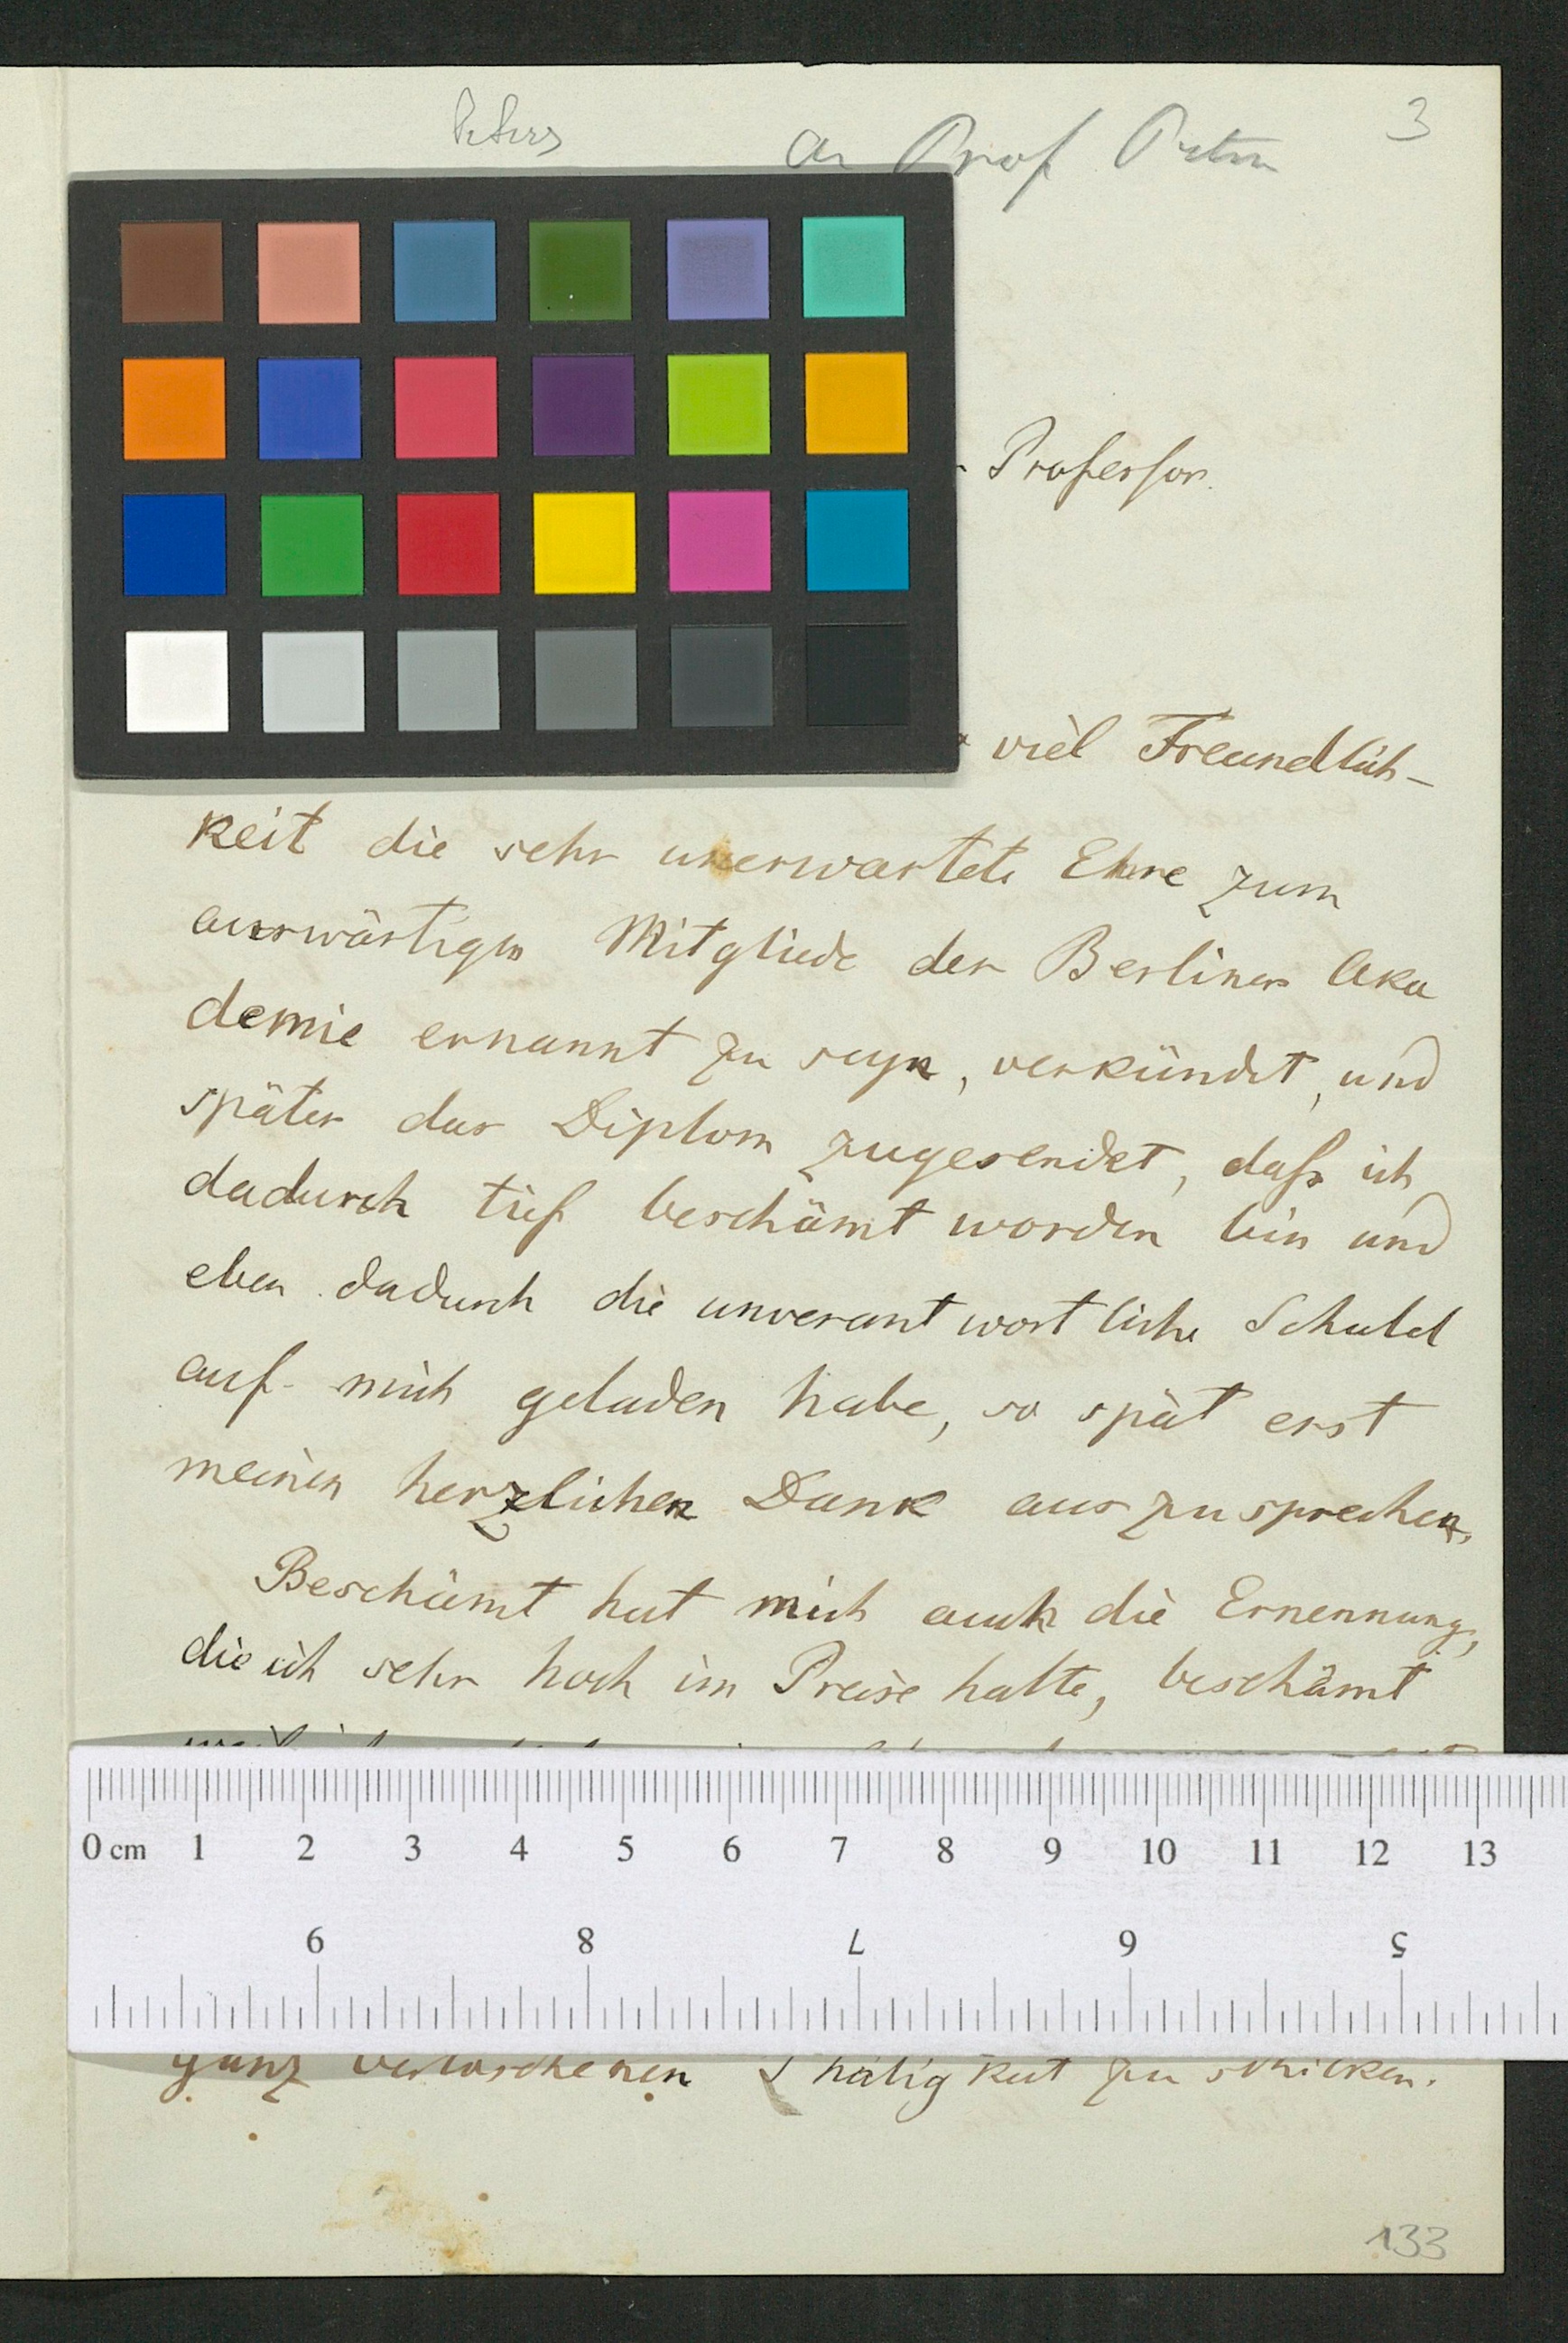 Peters
an Prof Peters
3
Professor.
viel Freundlich-
keit die sehr unerwartete Ehre zum
auswärtigen Mitgliede der Berliner Aka
demie ernannt zu seyn, verkündet, und
später das Diplom zugesendet, daß ich
dadurch tief beschämt worden bin und
eben dadurch die unverantwortliche Schuld
auf mich geladen habe, so spät erst
meinen herzlichen Dank auszusprechen.
Beschämt hat mich auch die Ernennung,
die ich sehr hoch im Preise halte, beschämt
0 cm 1 2 3 4 5 6 7 8 9 10 11 12 13
9 8 7 6 5
ganz verloschenen Thätigkeit zu schicken.
133